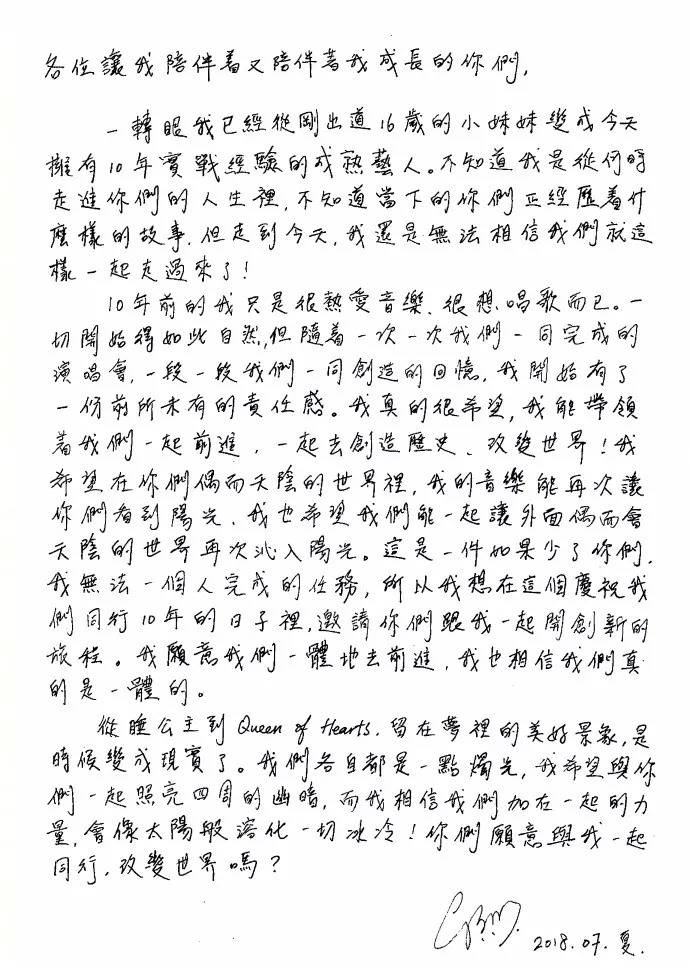 各位讓我陪伴着又陪伴著我成長的你們,
一轉眼我已經從剛出道16歲的小妹妹變成今天
擁有10年實戰經驗的成熟藝人。不知道我是從何時
走進你們的人生裡,不知道當下的你們正經歷着什
麼樣的故事,但走到今天,我還是無法相信我們就這
樣一起走過來了!
10年前的我只是很熱愛音樂、很想唱歌而已。一
切開始得如此自然,但隨着一次一次我們一同完成的
演唱會,一段一段我們一同創造的回憶,我開始有了
一份前所未有的責任感。我真的很希望,我能帶領
着我們一起前進,一起去創造歷史、改變世界!我
希望在你們偶而天陰的世界裡,我的音樂能再次讓
你們看到陽光、我也希望我們能一起讓外面偶而會
天陰的世界再次沁入陽光。這是一件如果少了你們,
我無法一個人完成的任務,所以我想在這個慶祝我
們同行10年的日子裡,邀請你們跟我一起開創新的
旅程。我願意我們一體地去前進,我也相信我們真
的是一體的。
從睡公主到Queen of Hearts,留在夢裡的美好景象,是
時候變成現實了。我們各自都是一點燭光,我希望與你
們一起照亮四周的幽暗,而我相信我們加在一起的力
量,會像太陽般溶化一切冰冷!你們願意與我一起
同行,改變世界嗎?
2018.07.夏.